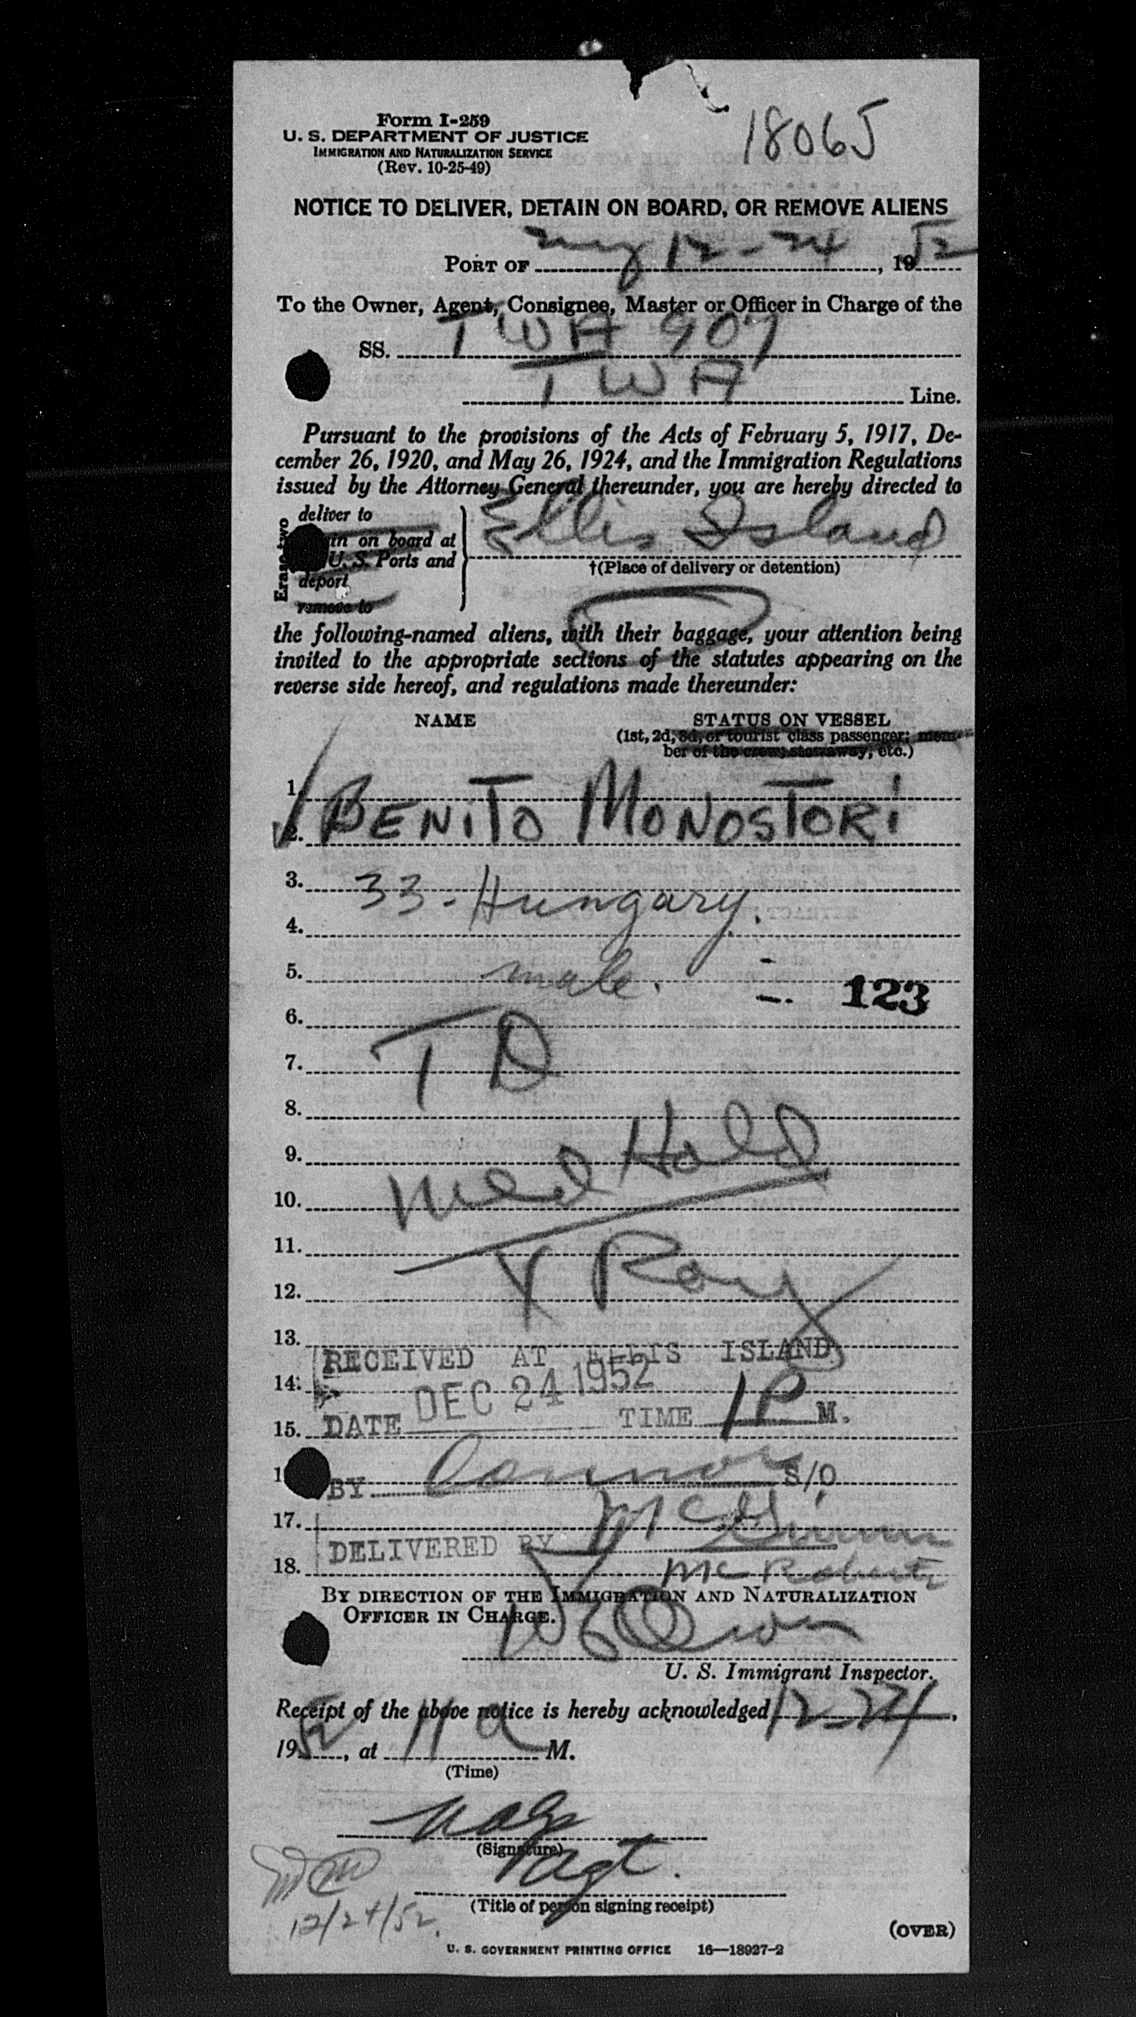 Form I-259
18065
U. S. DEPARTMENT OF JUSTICE
IMMIGRATION AND NATURALIZATION SERVICE
(Rev. 10-25-49)
NOTICE TO DELIVER, DETAIN ON BOARD, OR REMOVE ALIENS
PORT OF 12-24, 1952
To the Owner, Agent, Consignee, Master or Officer in Charge of the
SS. TWA 907
TWA Line.
Pursuant to the provisions of the Acts of February 5, 1917, De-
cember 26, 1920, and May 26, 1924, and the Immigration Regulations
issued by the Attorney General thereunder, you are hereby directed to
deliver to
on board at
U. S. Ports and
deport
remove to
Erase two
Ellis Island
†(Place of delivery or detention)
the following-named aliens, with their baggage, your attention being
invited to the appropriate sections of the statutes appearing on the
reverse side hereof, and regulations made thereunder:
NAME STATUS ON VESSEL
(1st, 2d, 3d, or tourist class passenger; mem-
ber of the crew; stowaway, etc.)
1.
2. BENITO MONOSTORI
3. 33-Hungary.
4.
5. male.
123
6.
7. TD
8.
9. Med Hold
10.
11. X Ray
12.
13. RECEIVED AT ELLIS ISLAND
14. DEC 24 1952
15. DATE TIME 1P M.
BY Connor S/O
17. McGinn
18. DELIVERED BY
McRoberts
BY DIRECTION OF THE IMMIGRATION AND NATURALIZATION
OFFICER IN CHARGE.
U. S. Immigrant Inspector.
Receipt of the above notice is hereby acknowledged 12-24,
1952, at 11 a M.
(Time)
(Signature)
Agt.
(Title of person signing receipt)
12/24/52.
(OVER)
U. S. GOVERNMENT PRINTING OFFICE 16—18927-2